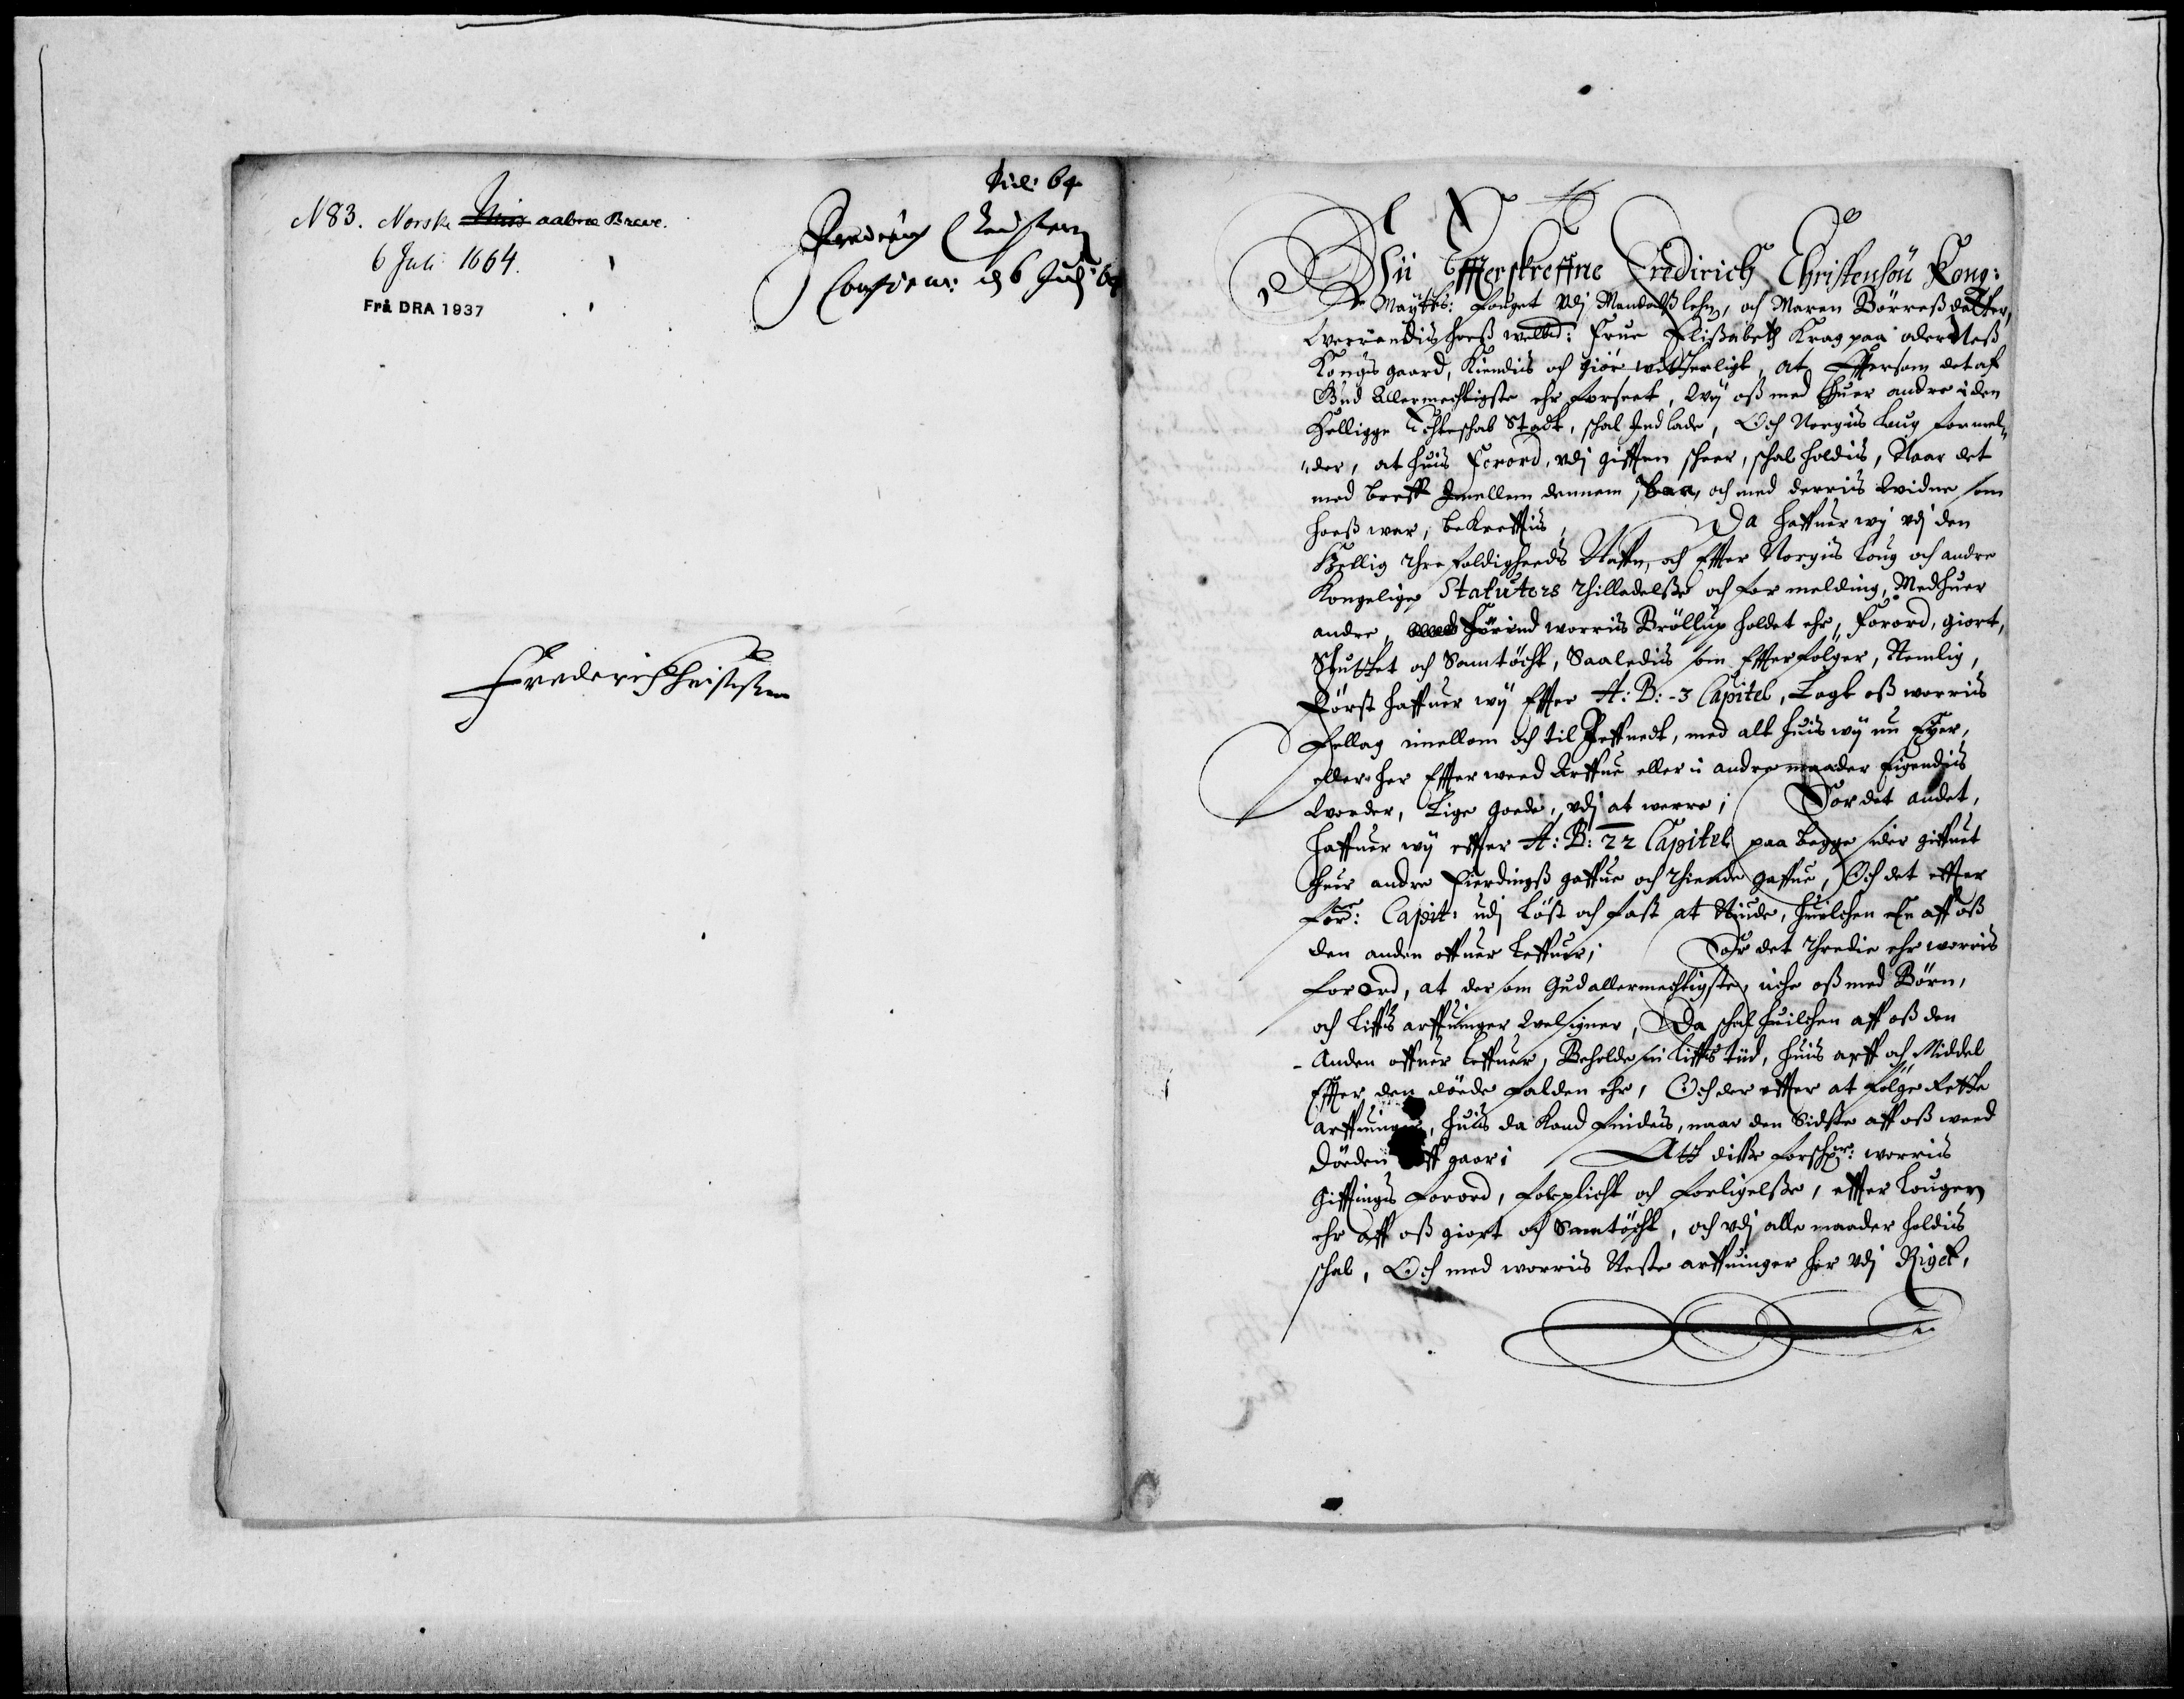 N 83. Norske Miss aabne Breve.
6 Juli 1664.
Frå DRA 1937
Juli 64
Frederich Christens
Confirm: d 6 Julj 64
Frederich Christensen
Wii Effterskreffne Fredirich Christensøn Kong:
Maÿtts: Fouget vdj Mandalß lehn, och Maren Børreßdatter,
werrendis hoeß welbd: Frue Elißabeth Krag paa oderNeß
Kongs gaard, Kiendis och giør witterligt, at Efftersom det af
Gud Allermechtigste ehr forseet, Wÿ oß med huer andre i den
Hellige Echteschab Stadt, schal Ind lade, Och Norgis Laug formel¬
der, at huis forord, vdj gifften scheer, schal holdis, Naar det
med breff Imellem dennem, och med derris Widne som
hoeß war, bekrefftis, Da haffuer wÿ vdj den
Hellig threfoldigheds Naffn, och Effter Norgis Loug och andre
Kongelige Statuters thilladelße och formelding, Med huer
andre, førend worris Brøllup holdet ehr, forord, giort,
Sluttet och Samtøcht, Saaledis som Effterfølger, Nemlig,
Først haffuer wÿ Effter A: B: 3 Capitel, Lagt oß worris
Fellag imellom och til Jeffnedt, med alt huis wÿ nu Eyer,
eller her Effter weed Arffue eller i andre maader Eigendis
Worder, Lige goede, vdj at werre; For det andet,
haffuer wÿ effter A: B: 22 Capitel paa begge sider giffuet
huer andre Fierdingß gaffue och thiende gaffue, Och det effter
for: Capit: udj Løst och fast at Niude, huilchen En aff oß
den anden offuer leffuer; For det thredie ehr worris
forord, at der som Gud allermechtigste, iche oß med Børn,
och Liffs arffuinger Welsigner, Da schal huilchen aff oß den
Anden offuer leffuer, Beholde sin Liffs tiid, huis arff och Middel
Effter den døede falden ehr, Och der effter at følge Rette
arffuinger, huis da Kand findis, naar den Sidste aff oß weed
Døeden aff gaar; Att diße forschr: worris
Gifftings forord, forplicht och forligelße, effter Lougen
ehr aff oß giort och Samtøcht, och vdj alle maader holdis
schal, Och med worris Neste arffuinger her vdj Riget,